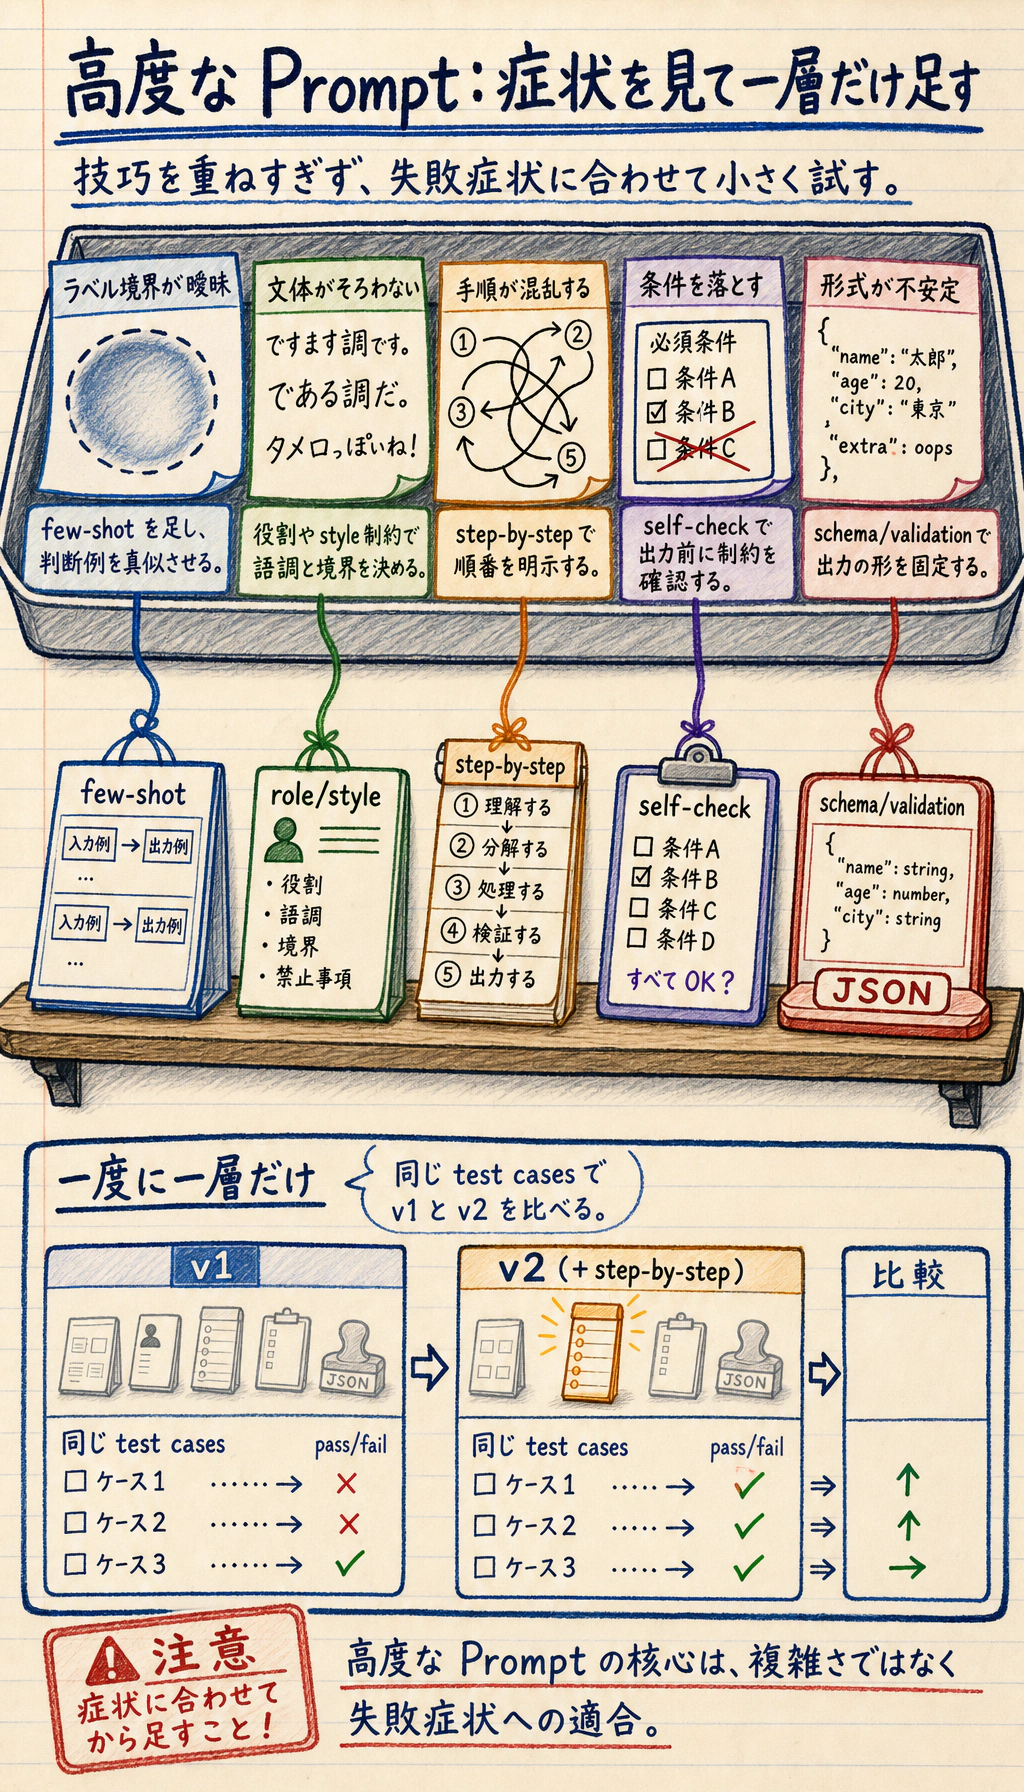 高度な Prompt：症状を見て一層だけ足す
技巧を重ねすぎず、失敗症状に合わせて小さく試す。
ラベル境界が曖昧
few-shot を足し、
判断例を真似させる。
文体がそろわない
ですます調です。
である調だ。
タメロっぽいね！
役割や style 制約で
語調と境界を決める。
手順が混乱する
①
②
③
⑤
step-by-step で
順番を明示する。
条件を落とす
必須条件
条件A
条件B
条件C
self-check で
出力前に制約を
確認する。
形式が不安定
{
"name": "太郎",
"age": 20,
"city": "東京"
,
"extra": oops
},
schema/validation で
出力の形を固定する。
few-shot
入力例 → 出力例
...
入力例 → 出力例
...
role/style
・役割
・語調
・境界
・禁止事項
step-by-step
① 理解する
② 分解する
③ 処理する
④ 検証する
⑤ 出力する
self-check
条件A
条件B
条件C
条件D
すべて OK？
schema/validation
{
"name": string,
"age": number,
"city": string
}
JSON
一度に一層だけ
同じ test cases で
v1 と v2 を比べる。
v1
JSON
同じ test cases pass/fail
ケース1 ······→ ×
ケース2 ······→ ×
ケース3 ······→ ✓
v2 (+ step-by-step)
JSON
同じ test cases pass/fail
ケース1 ·····→ ✓
ケース2 ·····→ ✓
ケース3 ·····→ ✓
比較
⇒ ↑
⇒ ↑
⇒ →
注意
症状に合わせて
から足すこと！
高度な Prompt の核心は、複雑さではなく
失敗症状への適合。